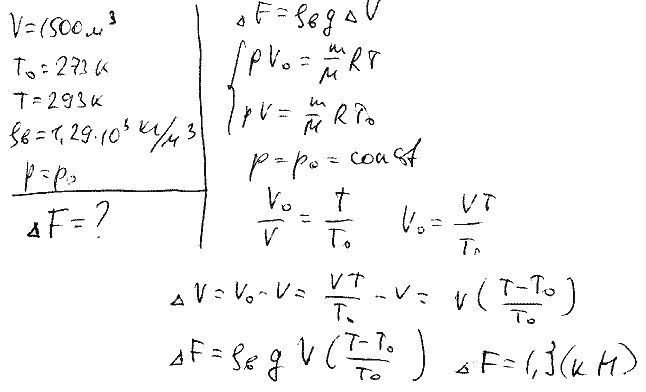 V=1500 м³
T₀=273 К
T=293 К
ρв=1,29·10³ кг/м³
p=p₀
ΔF=?
ΔF=ρв g ΔV
{ pV₀ = m/M RT
pV = m/M RT₀
p=p₀=const
V₀/V = T/T₀ V₀ = VT/T₀
ΔV=V₀-V= VT/T₀ -V= V(T-T₀/T₀)
ΔF=ρв g V(T-T₀/T₀) ΔF=1,3(кН)